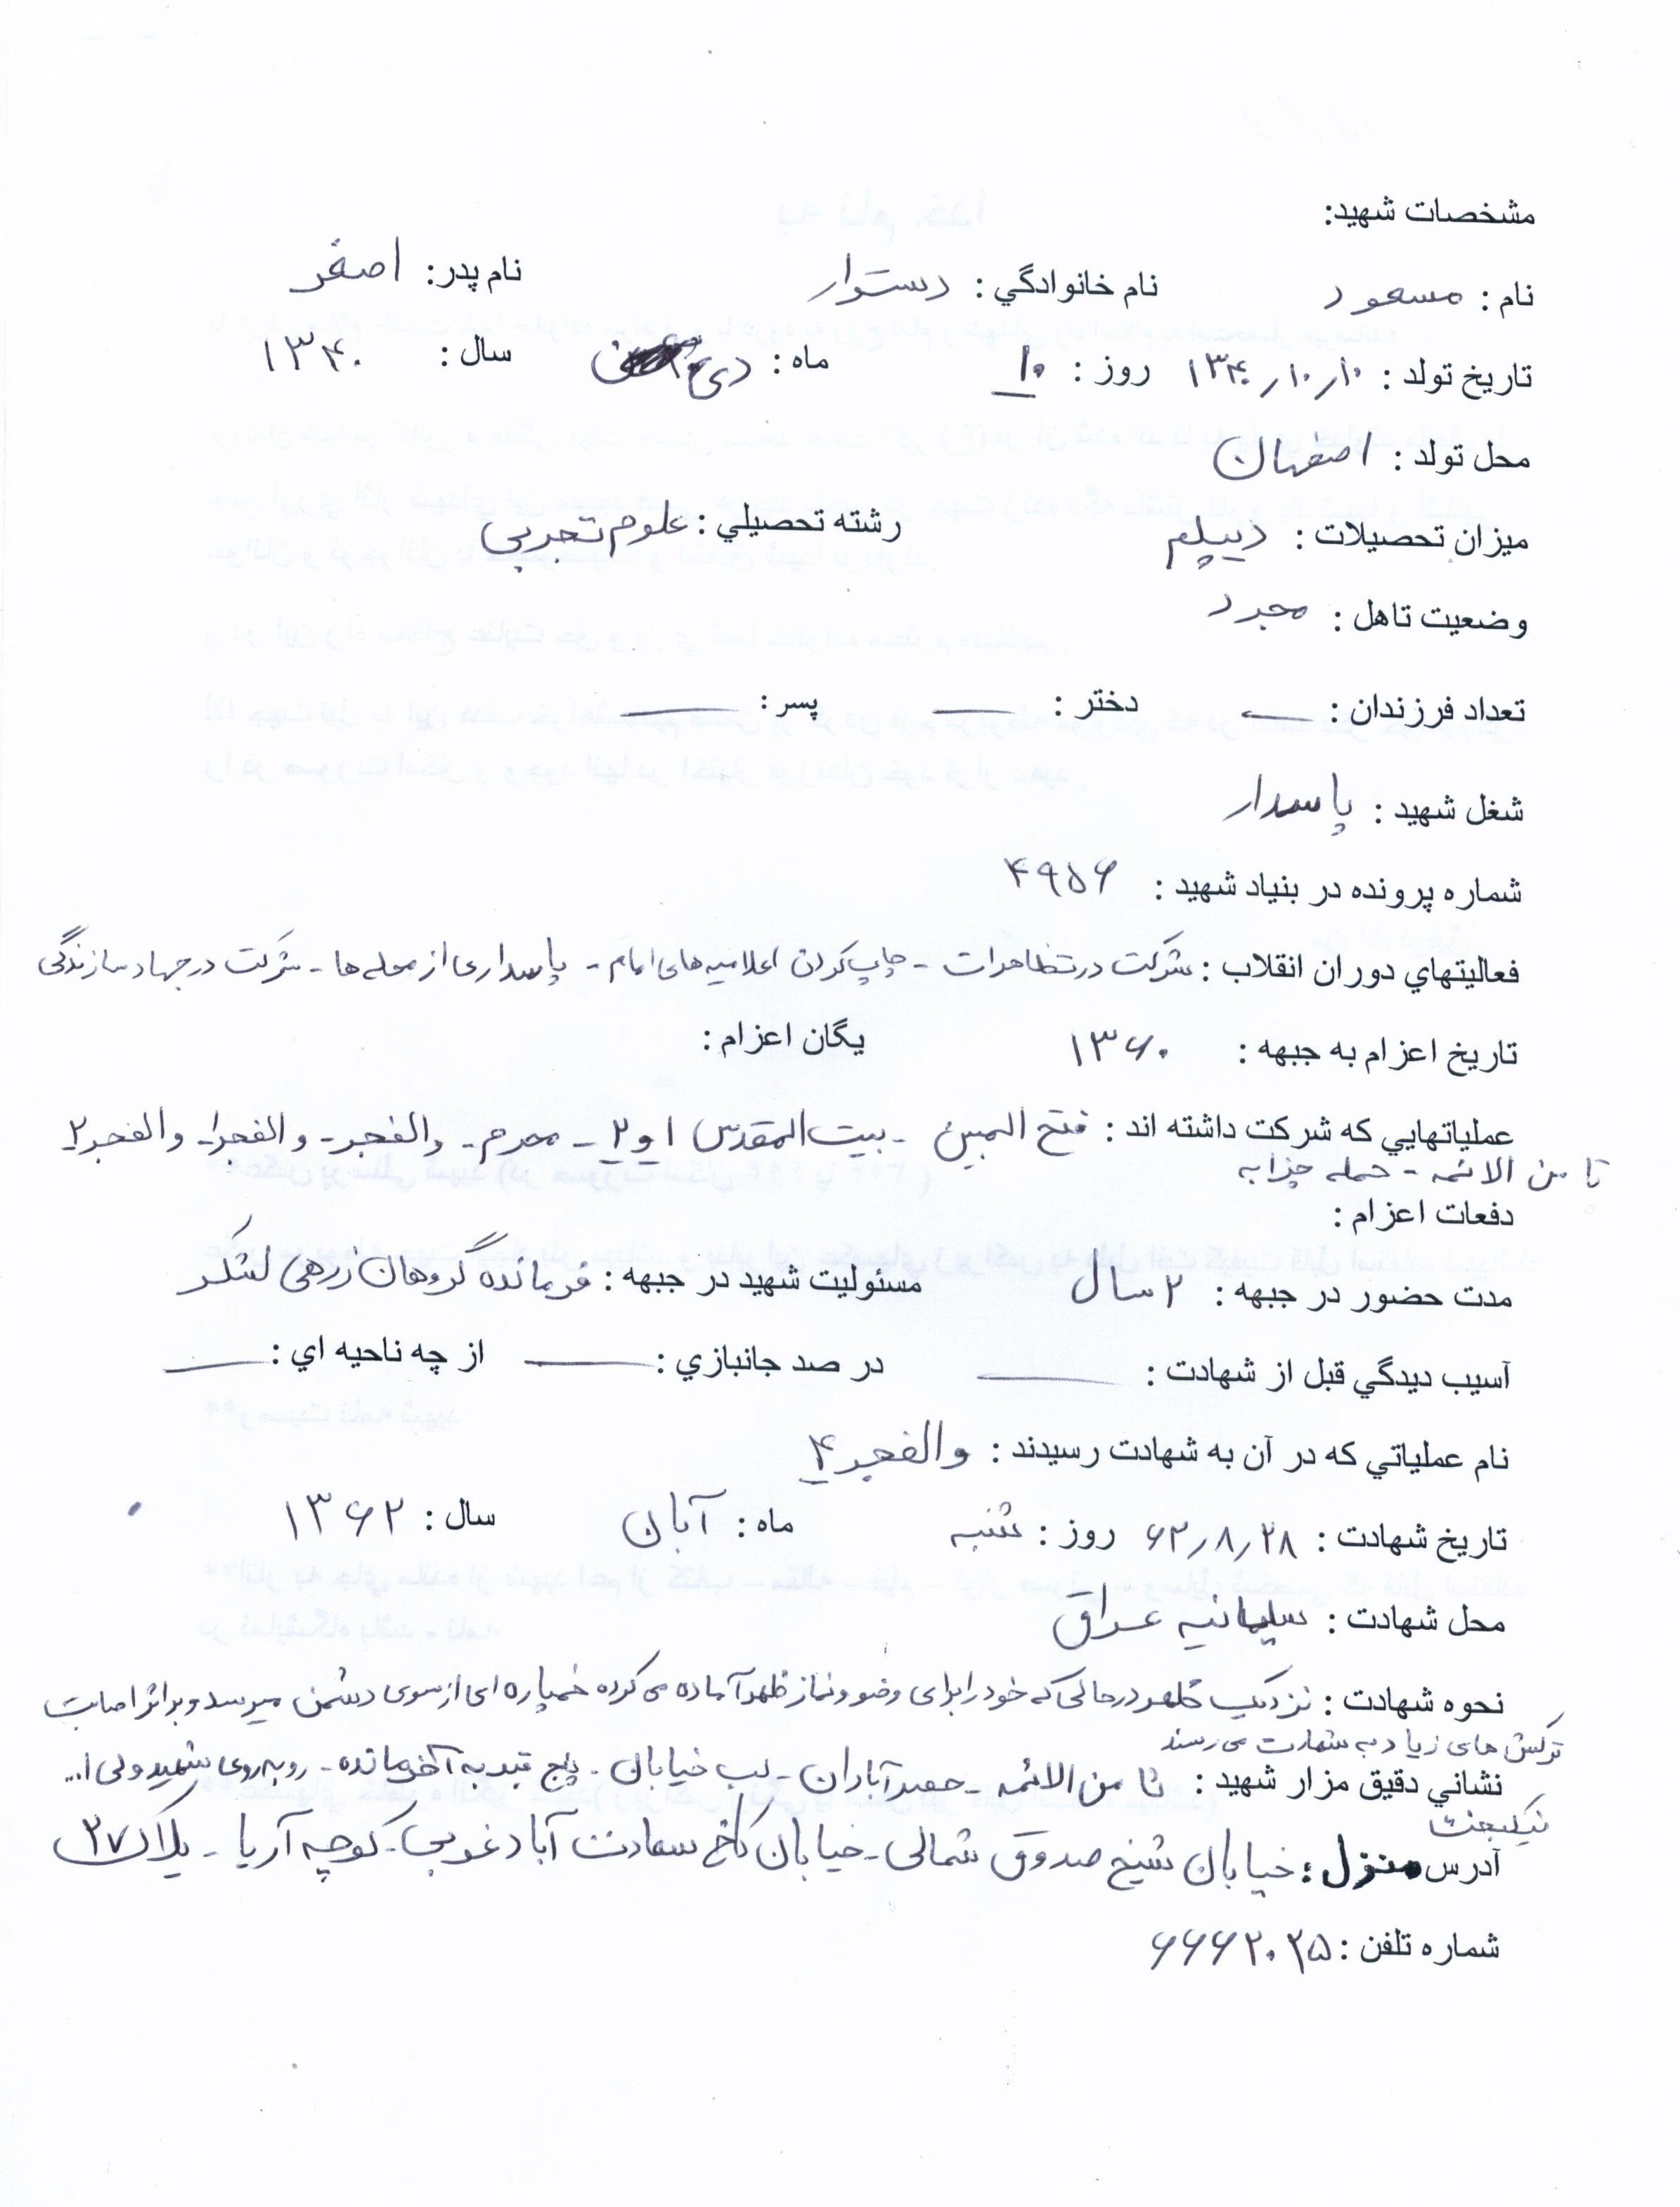 مشخصات شهید:
نام : مسعود نام خانوادگي : دستوار نام پدر: اصغر
تاریخ تولد : ۱۳۴۰/۱۰/۱۰ روز : ۱۰ ماه : دی سال : ۱۳۴۰
محل تولد : اصفهان
میزان تحصیلات : دیپلم رشته تحصیلي : علوم تجربی
وضعیت تاهل : مجرد
تعداد فرزندان : — دختر : — پسر : —
شغل شهید : پاسدار
شماره پرونده در بنیاد شهید : ۴۹۵۶
فعالیتهاي دوران انقلاب : شرکت در تظاهرات - چاپ کردن اعلامیه های امام - پاسداری از محله ها - شرکت در جهاد سازندگی
تاریخ اعزام به جبهه : ۱۳۶۰ یگان اعزام :
عملیاتهایي که شرکت داشته اند : فتح المبین - بیت المقدس ۱ و ۲ - محرم - والفجر - والفجر۱ - والفجر۲
ثامن الائمه - حمله چزابه
دفعات اعزام :
مدت حضور در جبهه : ۲ سال مسئولیت شهید در جبهه : فرمانده گروهان زرهی لشکر
آسیب دیدگي قبل از شهادت : — در صد جانبازي : — از چه ناحیه اي : —
نام عملیاتي که در آن به شهادت رسیدند : والفجر ۴
تاریخ شهادت : ۶۲/۸/۲۸ روز : شنبه ماه : آبان سال : ۱۳۶۲
محل شهادت : سلیمانیه عراق
نحوه شهادت : نزدیک ظهر در حالی که خود را برای وضو و نماز ظهر آماده می کرده خمپاره ای از سوی دشمن میرسد و بر اثر اصابت
ترکش های زیاد به شهادت می رسند
نشاني دقیق مزار شهید : ثامن الائمه - حصه آباداران - لب خیابان - پنج قبر به آخر مانده - روبه روی شهید ولی ا...
نیکبخت
آدرس منزل : خیابان شیخ صدوق شمالی - خیابان کاخ سعادت آباد غربی - کوچه آریا - پلاک ۲۷
شماره تلفن : ۶۶۶۲۰۲۵